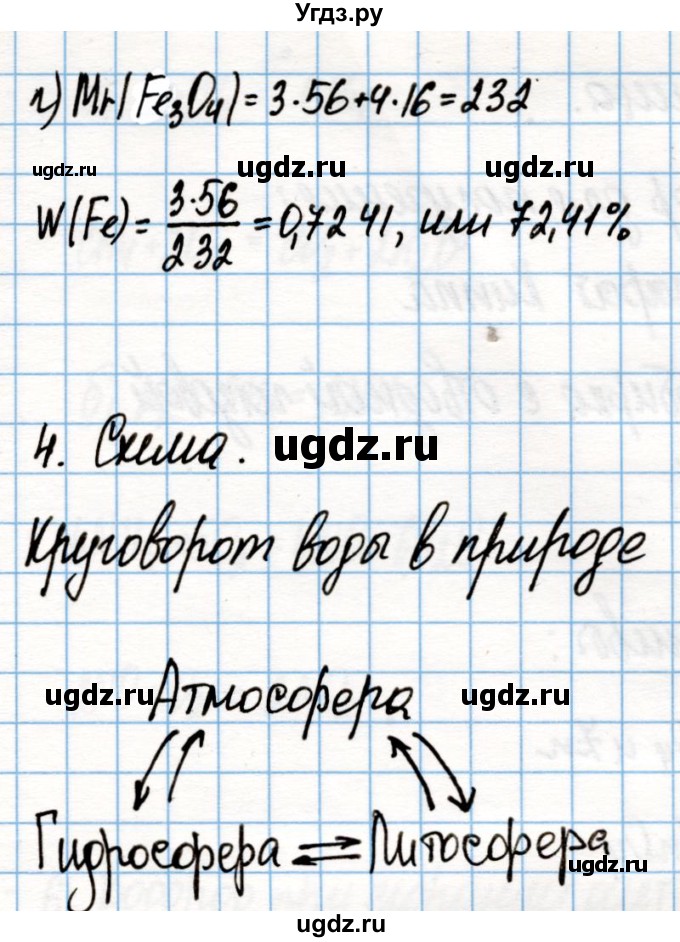 Угдз.ру
г) Mr(Fe₃O₄) = 3·56+4·16=232
ugdz.ru ugdz.ru ugdz.ru
W(Fe) = 3·56/232 = 0,7241, или 72,41%
4. Схема. ugdz.ru
Круговорот воды в природе
ugdz.ru Атмосфера ugdz.ru
Гидросфера ⇌ Литосфера
ugdz.ru
ugdz.ru